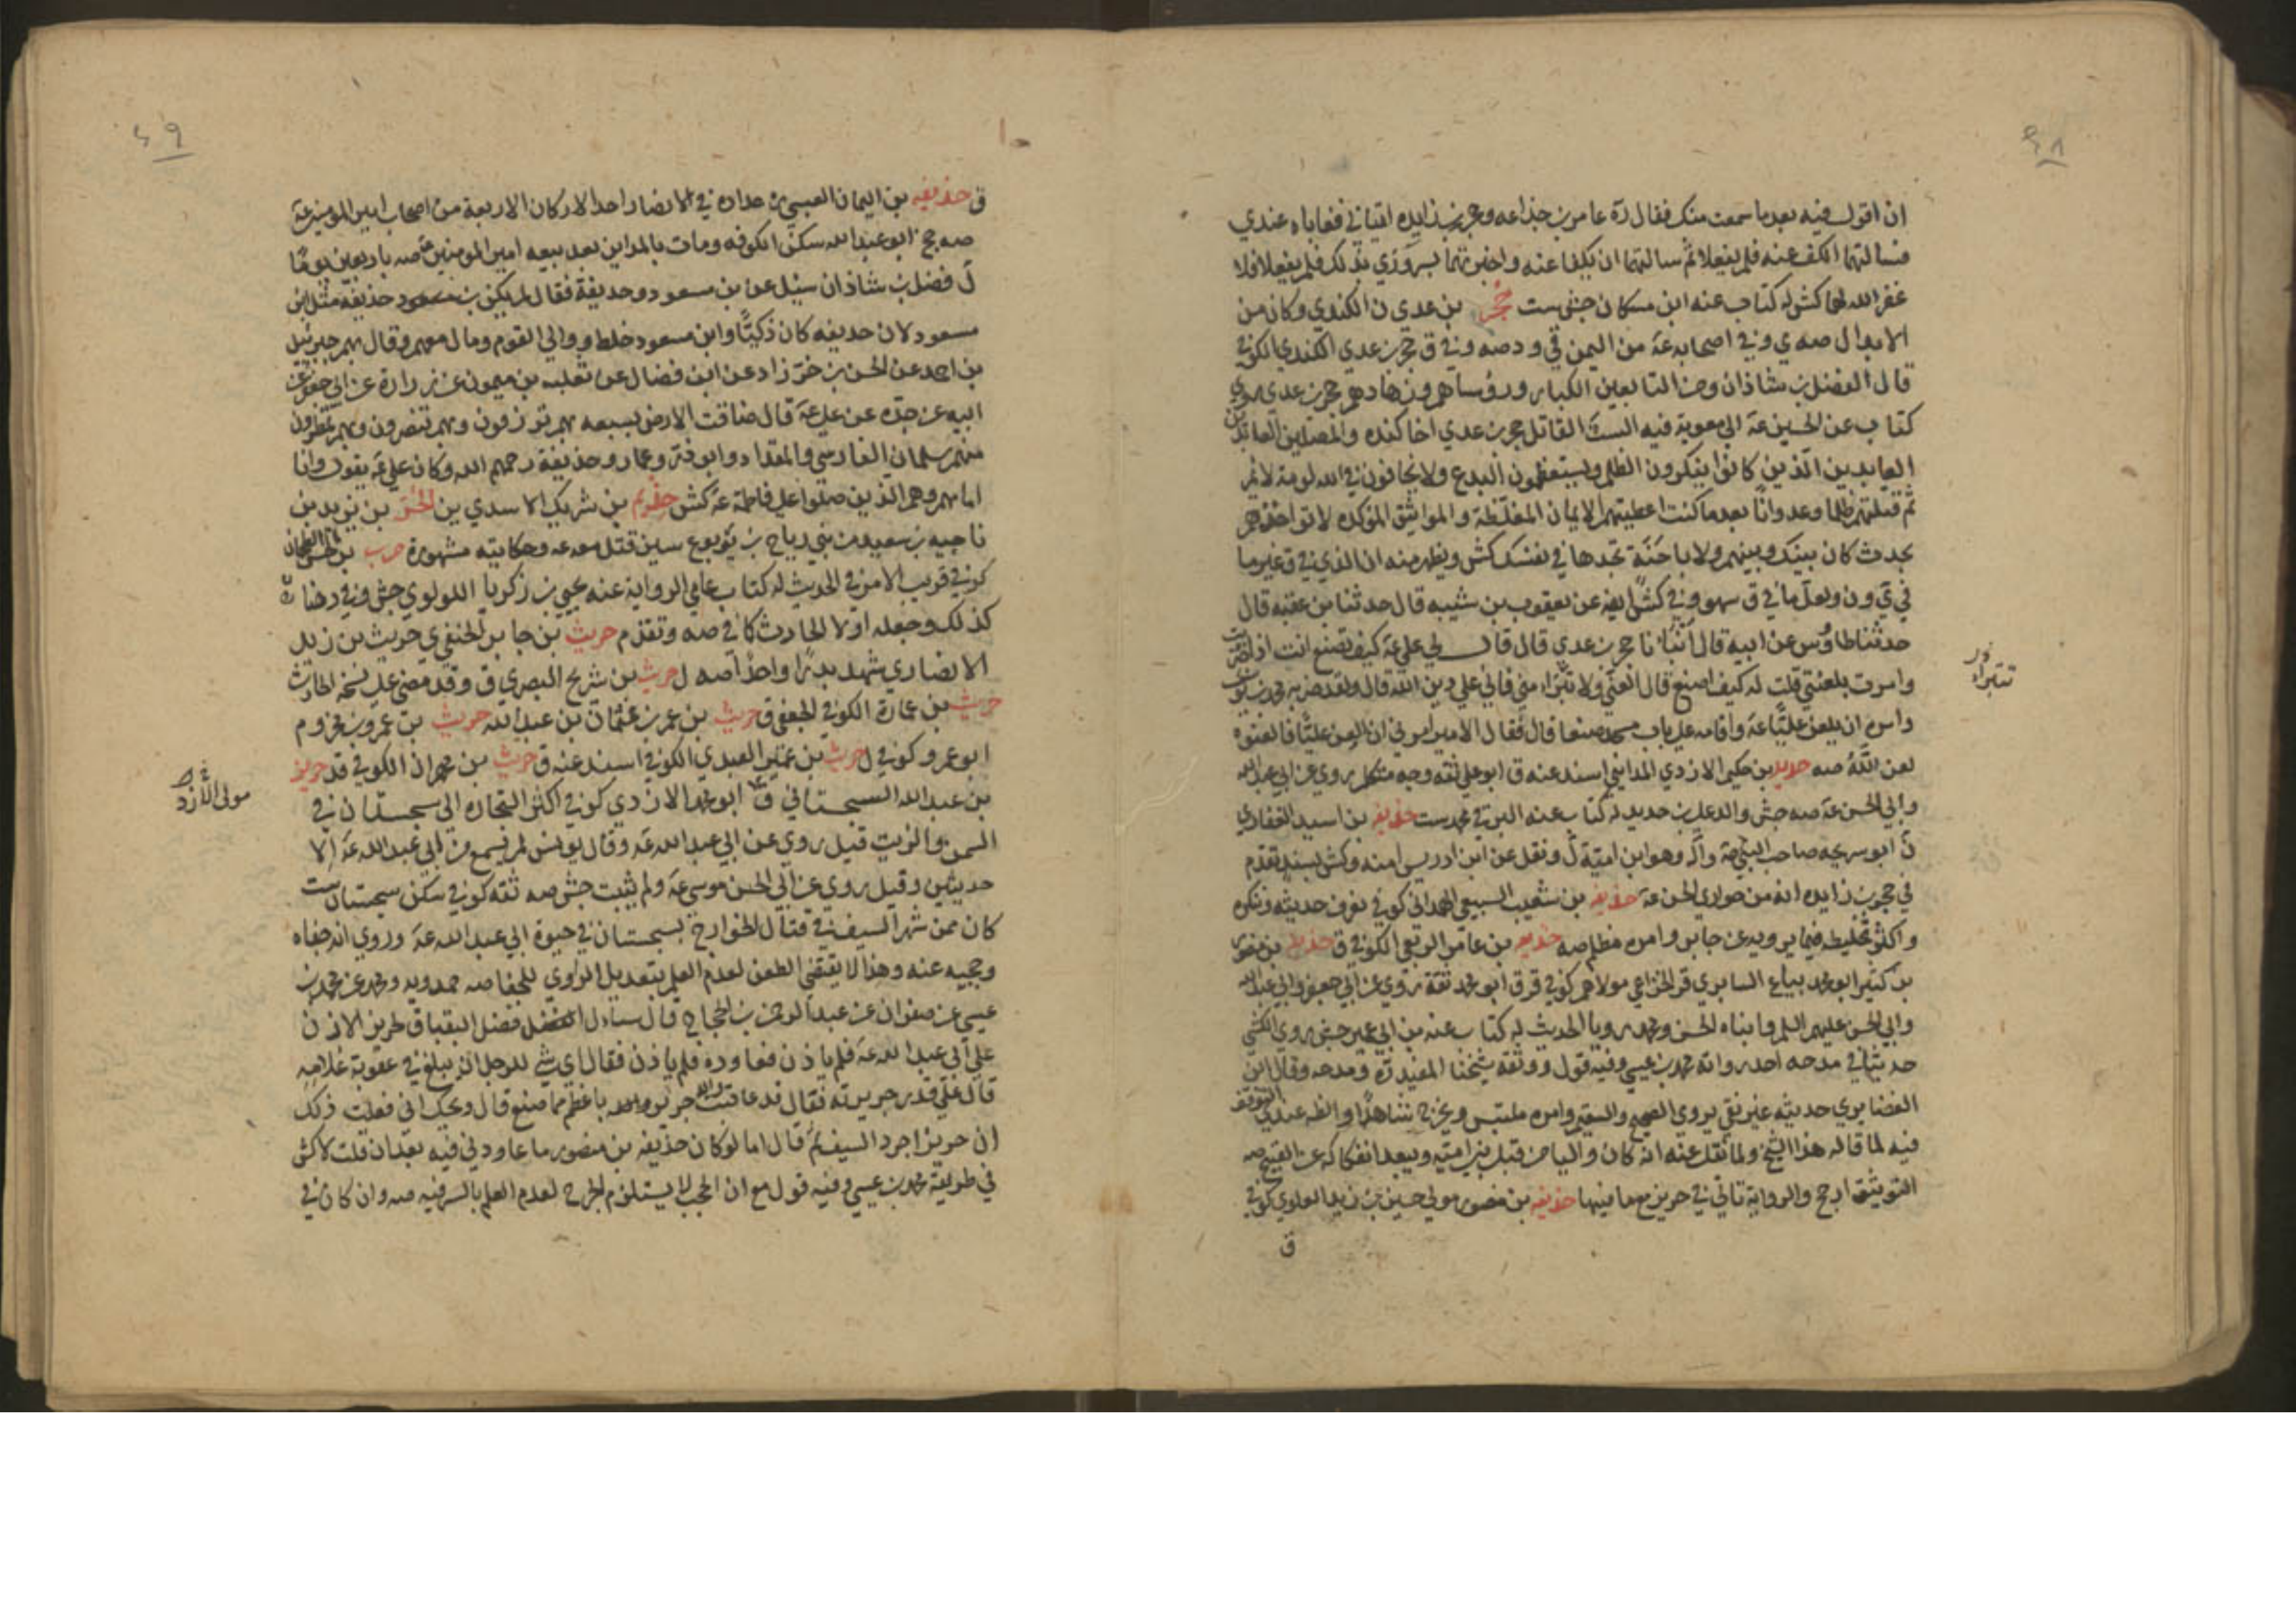 ان اقول فيه بعد ما سمعت منك فقال رة عامر بن جذاعه وحجر بن زايده اتياني فعاباه عندي
فسالتهما الكف عنه فلم يفعلا ثم سالتهما ان يكفا عنه واخبرتهما بسروري بذلك فلم يفعلا فلا
غفر الله لهما كش له كتاب عنه ابن مسكان جش ست حجر بن عدي ن الكندي وكان من
الابدال صه ي وفي اصحابه عة من اليمن قي ود صه وفي ق حجر بن عدي الكندي الكوفي
قال الفضل بن شاذان ومن التابعين الكبار ورؤساهم وزهادهم حجر بن عدي
كتاب عن الحسين عة الى معوية فيه الست القاتل حجر بن عدي اخا كنده والمصلين العابدين
العابدين الذين كانوا ينكرون الظلم ويستعظمون البدع ولا يخافون في الله لومة لائم
ثم قتلتهم ظلما وعدوانا بعد ما كنت اعطيتهم الايمان المغلظة والمواثيق المؤكده لا تواخذهم
بحدث كان بينك وبينهم ولا باحنة تجدها في نفسك كش ويظهر منه ان الذي في ق غير ما
في ي ون ولعل ما في ق سهو وفي كش ايضا عن يعقوب بن شيبه قال حدثنا بن عقبه قال
حدثنا طاوس عن ابيه قال انبانا حجر بن عدي قال قال لي علي عة كيف تصنع انت اذا ضربت
وامرت بلعنتي قلت له كيف اصنع قال العني ولا تبرا مني فاني على دين الله قال ولقد ضربه محمد بن يوسف
وامره ان يلعن عليا عة واقامه على باب مسجد صنعا قال فقال الامير امرني ان العن عليا فالعنوه
لعن الله صه حديد بن حكيم الازدي المدايني اسند عنه ق ابو علي ثقه وجه متكلم روى عن ابي عبد الله
وابي الحسن عة صه جش والد علي بن حديد له كتاب عنه محمد ست حذيفه بن اسيد الغفاري
ن ابو سريحه صاحب النبي صة وآله وهو ابن امية ل ونقل عن ابن ادريس امنه وكش بسند تقدم
في حجر بن زايده انه من حواري الحسن عة حذيفه بن شعيب السبيعي الهمداني كوفي يعرف حديثه وينكره
واكثر تخليطه فيما يرويه عن جابر وامره مظلم صه حذيفه بن عامر الربعي الكوفي ق حذيفه بن منصور
بن كثير ابو محمد بياع السابري قر الخزاعي مولاهم كوفي قر ق ابو محمد ثقة روى عن ابي جعفر وابي عبد الله
وابي الحسن عليهم السلم وابناه الحسن ومحمد رويا الحديث له كتاب عنه بن ابي عمير جش روى الكشي
حديثا في مدحه احد رواته محمد بن عيسى وفيه قول ووثقه شيخنا المفيد رة ومدحه وقال ابن
الغضايري حديثه غير نقي يروي الصحيح والسقيم وامره ملتبس ويخرج شاهدا والظ عندي التوقف
فيه لما قاله هذا الشيخ ولما نقل عنه انه كان واليا من قبل بني امية ويبعد انفكاكه عن القبيح صه
التوثيق ارجح والرواية تاتي في حريز مع ما فيها حذيفه بن منصور مولى حسين بن زيد العلوي كوفي
ق
تتبرا
٤٨
٤٩
ق حذيفه بن اليمان العبسي عداده في الانصار احد الاركان الاربعة من اصحاب امير المومنين عة
صه جخ ابو عبد الله سكن الكوفه ومات بالمداين بعد بيعه امير المومنين عة صه باربعين يوما
ل فضل بن شاذان سئل عن بن مسعود وحذيفة فقال لم يكن بن مسعود حذيفه مثل ابن
مسعود لان حذيفه كان ذكيا وابن مسعود خلط ووالى القوم ومال معهم وقال بهم جبرئيل
بن احمد عن الحسن بن خرزاد عن ابن فضال عن ثعلبه بن ميمون عن زرارة عن ابي جعفر عن
ابيه عن جده عن علي عة قال ضاقت الارض بسبعه بهم ترزقون وبهم تنصرون وبهم تمطرون
منهم سلمان الفارسي والمقداد وابو ذر وعمار وحذيفة رحمهم الله وكان علي عة يقول وانا
امامهم وهم الذين صلوا على فاطمة عة كش حذيم بن شريك الاسدي ين الحر بن يزيد بن
ناجيه بن سعيد من بني رياح بن يربوع سين قتل معه عة وحكايته مشهورة حرب بن الحسن الطحان
كوفي قريب الامر في الحديث له كتاب عامي الرواية عنه يحيى بن زكريا اللولوي جش وفي د
كذلك وجعله اولا الحارث كما في صه وتقدم حريث بن جابر الحنفي ي حريث بن زيد
الانصاري شهد بدرا واحدا صه ل حريث بن شريح البصري ق وقد مضى على نسخه الحارث
حريث بن عمارة الكوفي الجعفي ق حريث بن عمر بن عثمان بن عبد الله حريث بن عمرو بن مخزوم
ابو عمرو كوفي ل حريث بن عمير العبدي الكوفي اسند عنه ق حريث بن مهران الكوفي ق حريز
بن عبد الله السجستاني ق ابو محمد الازدي كوفي اكثر التجارة الى سجستان في
السمن والزيت قيل روى عن ابي عبد الله عة وقال يونس لم يسمع من ابي عبد الله عة الا
حديثين وقيل روى عن ابي الحسن موسى عة ولم يثبت جش صه ثقه كوفي سكن سجستان ست
كان ممن شهر السيف في قتال الخوارج بسجستان في حيوة ابي عبد الله عة وروي انه جفاه
وحجبه عنه وهذا لا يقتضي الطعن لعدم العلم بتعديل الراوي للجفا صه حمدويه ومحمد عن محمد بن
عيسى عن صفوان عن عبد الرحمن بن الحجاج قال سال فضل البقباق لحريز الاذن
على ابي عبد الله عة فلم ياذن فعاوده فلم ياذن فقال اي شي للرجل ان يبلغ في عقوبة غلامه
قال على قدر جريرته فقال قد عاقبت والله حريزا باعظم مما صنع قال ويحك اني فعلت ذلك
ان حريزا جرد السيف ثم قال اما لو كان حذيفه بن منصور ما عاودني فيه بعد ان قلت لا كش
في طريقه محمد بن عيسى وفيه قول مع ان الحجب لا يستلزم الجرح لعدم العلم بالسر فيه صه وان كان في
مولى الازد